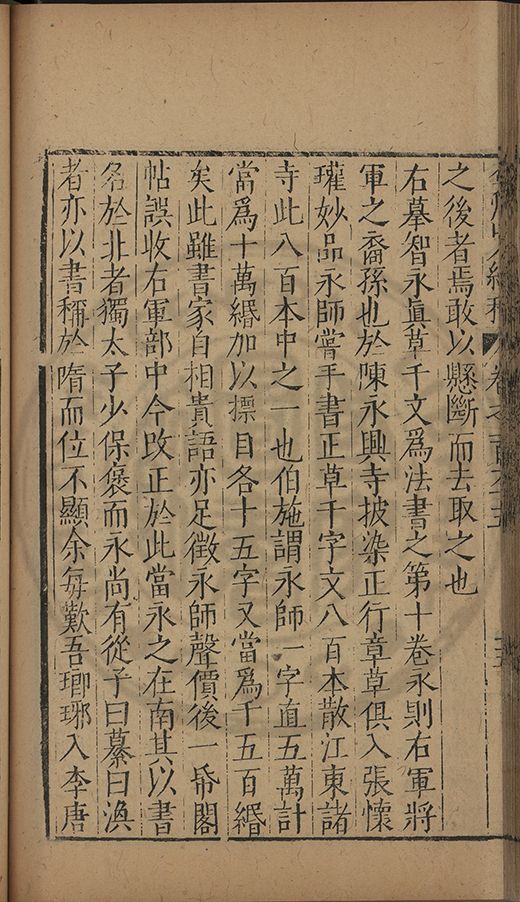 卷之一百六十五
之後者焉敢以懸斷而去取之也
右摹智永眞草千文爲法書之第十卷永則右軍將
軍之裔孫也於陳永興寺披染正行章草俱入張懷
瓘妙品永師嘗手書正草千字文八百本散江東諸
寺此八百本中之一也伯施謂永師一字直五萬計
當爲十萬緡加以摽目各十五字又當爲千五百緡
矣此雖書家自相貴語亦足徵永師聲價後一帋閣
帖誤收右軍部中今改正於此當永之在南其以書
名於北者獨太子少保褒而永尚有從子曰綦曰渙
者亦以書稱於隋而位不顯余每歎吾瑯琊入李唐